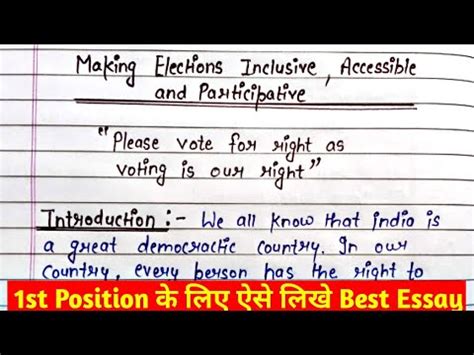 Making Elections Inclusive, Accessible
and Participative
"Please vote for right as
voting is our right"
Introduction :- We all know that india is
a great democractic country. In our
country, every person has the right to
1st Position के लिए ऐसे लिखे Best Essay